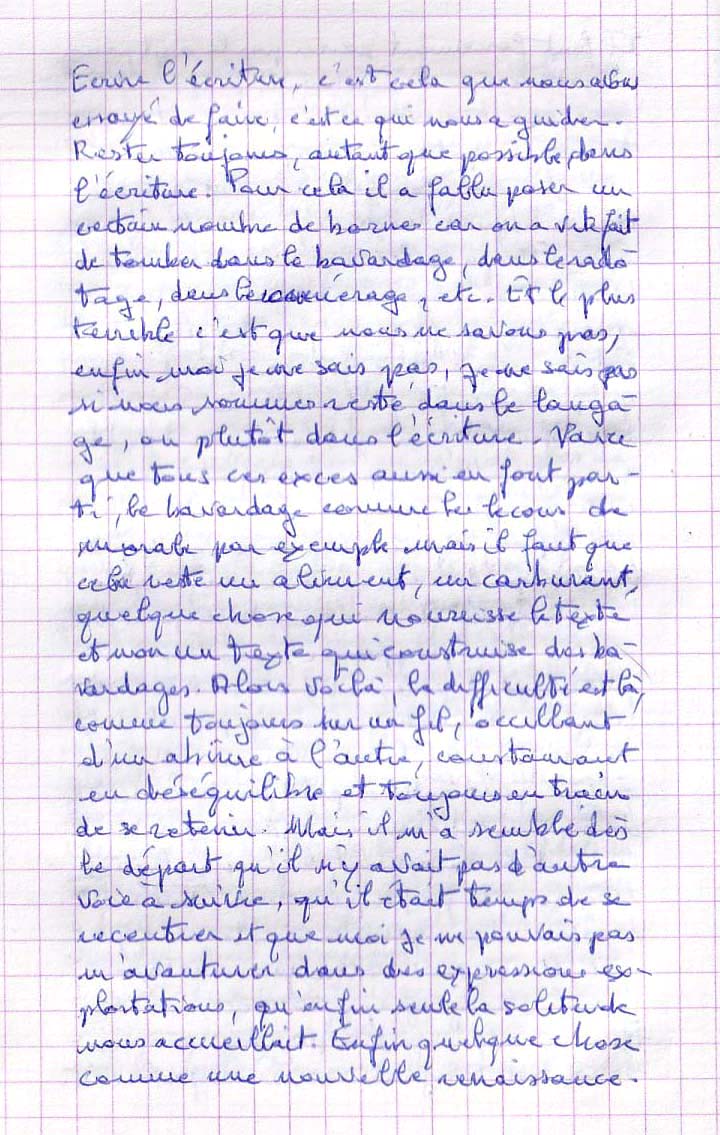 Ecrire l'écriture, c'est cela que nous avons
essayé de faire, c'est ce qui nous a guider.
Rester toujours, autant que possible, dans
l'écriture. Pour cela il a fallu poser un
certain nombre de bornes car on a vite fait
de tomber dans le bavardage, dans le rado-
tage, dans le commérage, etc. Et le plus
terrible c'est que nous ne savons pas,
enfin moi je ne sais pas, je ne sais pas
si nous sommes resté dans le langa-
ge, ou plutôt dans l'écriture. Parce
que tous ces exces aussi en font par-
ti, le bavardage comme les lecons de
morale par exemple mais il faut que
cela reste un aliment, un carburant,
quelque chose qui nourrisse le texte
et non un texte qui construise des ba-
vardages. Alors voilà, la difficulté est là,
comme toujours sur un fil, oscillant
d'un abîme à l'autre, constamment
en déséquilibre et toujours en train
de se retenir. Mais il m'a semblé dès
le départ qu'il n'y avait pas d'autre
voie à suivre, qu'il était temps de se
recentrer et que moi je ne pouvais pas
m'avanturer dans des expressions ex-
plortations, qu'enfin seule la solitude
nous accueillait. Enfin quelque chose
comme une nouvelle renaissance.